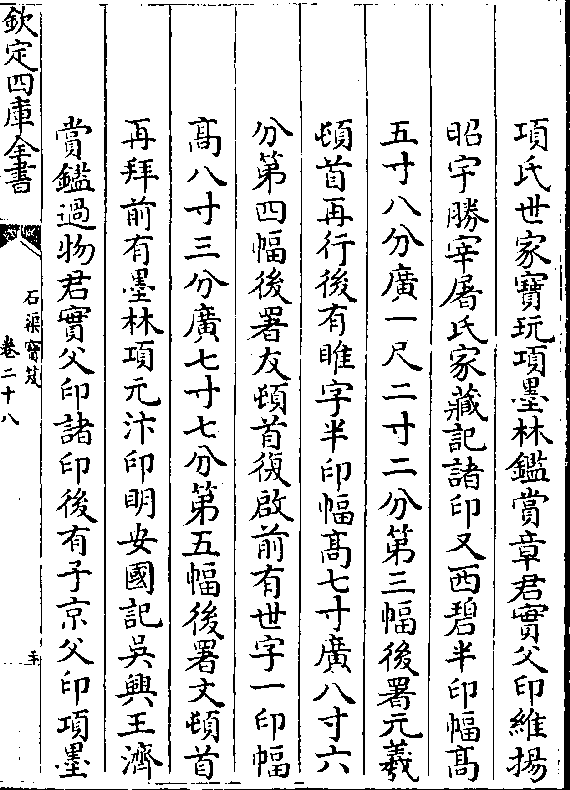 項氏世家寶玩項墨林鑑賞章君實父印維揚
昭宇勝宰屠氏家藏記諸印又西碧半印幅髙
五寸八分廣一尺二寸二分第三幅後署元羲
頓首再行後有睢字半印幅髙七寸廣八寸六
分第四幅後署友頓首復啟前有世字一印幅
髙八寸三分廣七寸七分第五幅後署文頓首
再拜前有墨林項元汴印明安國記吳興王濟
賞鑑過物君實父印諸印後有子京父印項墨
欽定四庫全書
石渠寶笈
卷二十八